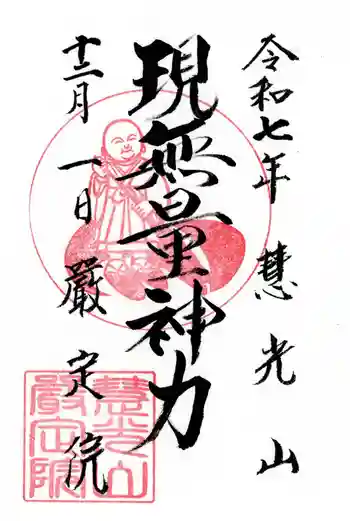 令和七年 慧光山
現無量神力
十二月 一日 嚴定院
慧光山
嚴定院